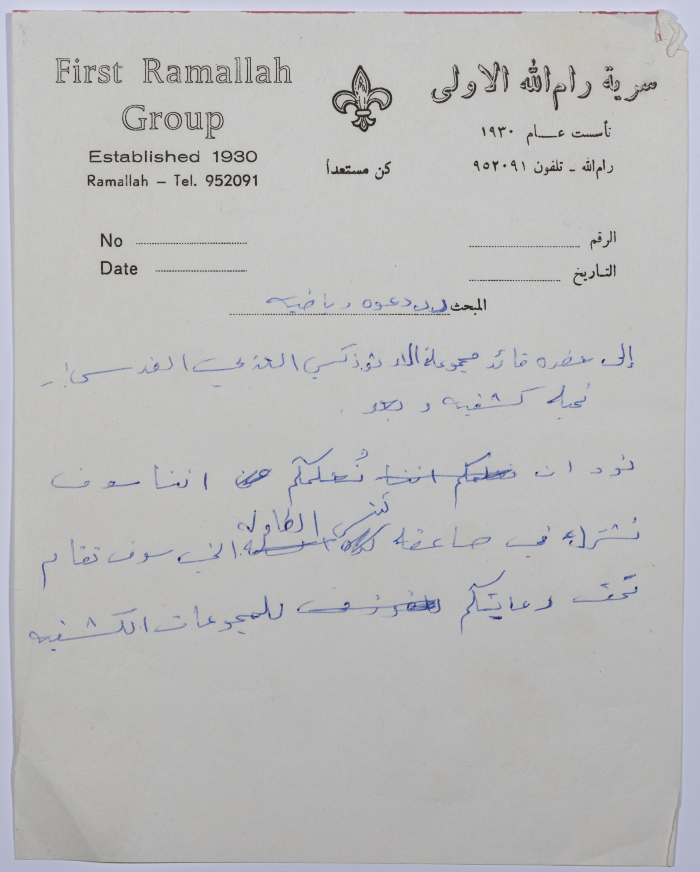 First Ramallah
Group
Established 1930
Ramallah – Tel. 952091
كن مستعداً
سرية رام الله الاولى
تأسست عام ١٩٣٠
رام الله - تلفون ٩٥٢٠٩١
No
Date
الرقم
التاريخ
المبحث رد دعوه رياضيه
إلى حضره قائد مجموعة الارثوذكسي العربي القدس
تحيه كشفيه وبعد
نود ان نعلمكم اننا نُعلمكم اننا سوف
نشترك في تنس الطاولة التي سوف تقام
تحت رعايتكم للمجموعات الكشفيه